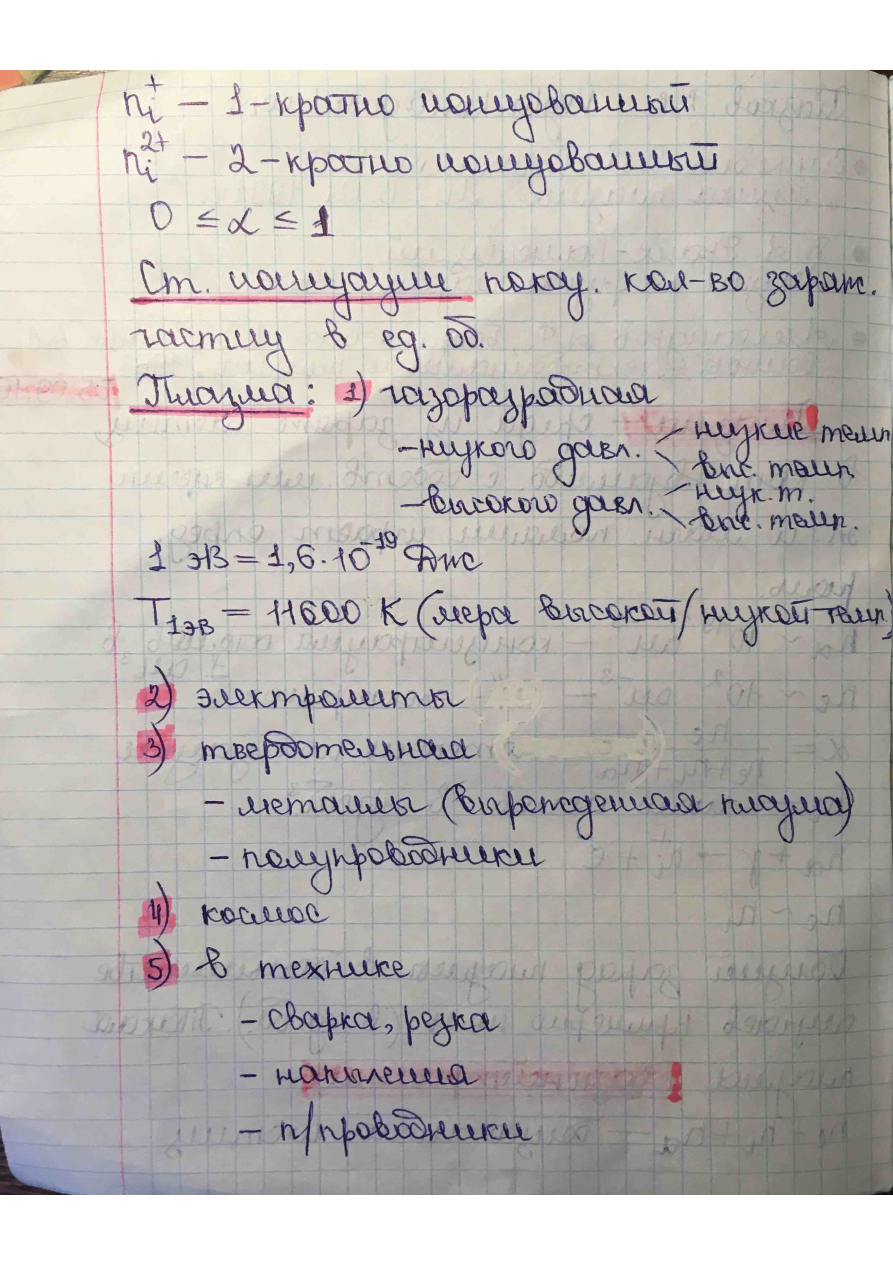 nᵢ⁺ – 1-кратно ионизованный
nᵢ²⁺ – 2-кратно ионизованный
0 ≤ α ≤ 1
Ст. ионизации показ. кол-во заряж.
частиц в ед. об.
Плазма: 1) газоразрядная
– низкого давл. низкие темп.
выс. темп.
– высокого давл. низк. т.
выс. темп.
1 эВ = 1,6·10⁻¹⁹ Дж
T₁эВ = 11600 К (мера высокой/низкой темп)
2) электролиты
3) твердотельная
– металлы (вырожденная плазма)
– полупроводники
4) космос
5) в технике
– сварка, резка
– напыления
– п/проводники